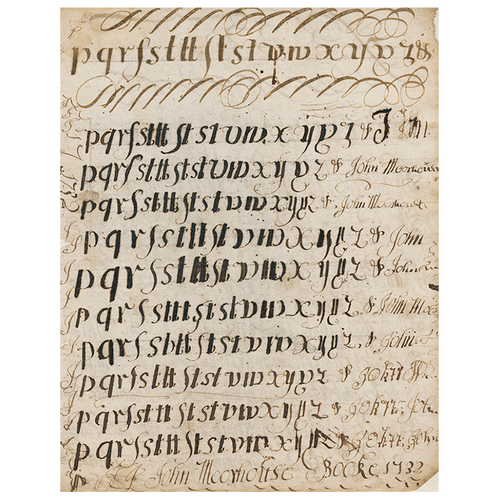 p q r ſ s t tt ſt st v w x y y z &
p q r ſ s t tt ſt st v w x y y z & J
p q r ſ s t tt ſt st v w x y y z & John Moorhouse
p q r ſ s t tt ſt st v w x y y z & John Moorhouse
p q r ſ s t tt ſt st v w x y y z & John
p q r ſ s t tt ſt st v w x y y z & John
p q r ſ s t tt ſt st v w x y y z & John
p q r ſ s t tt ſt st v w x y y z & John
p q r ſ s t tt ſt st v w x y y z & John
p q r ſ s t tt ſt st v w x y y z & John
p q r ſ s t tt ſt st v w x y y z & John
John Moorhouse Booke 1732